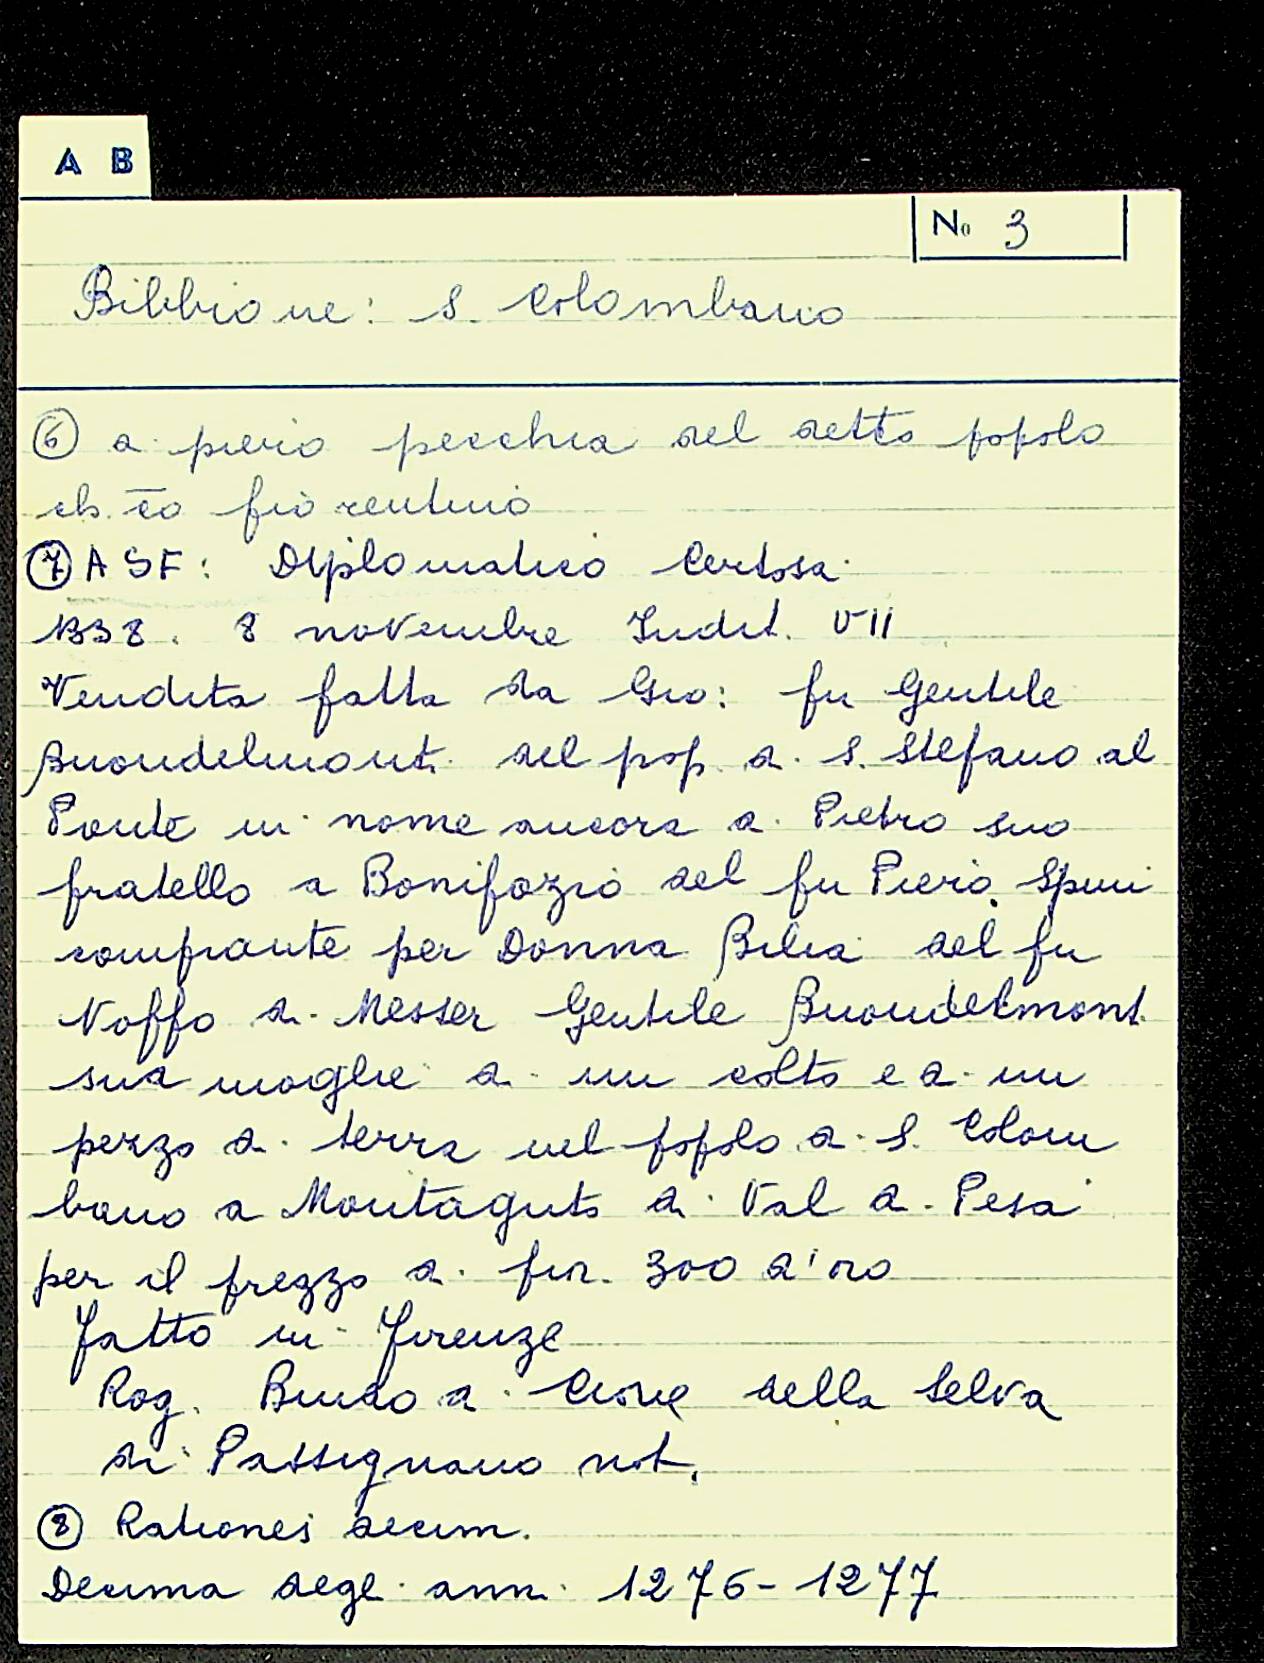 A B
No 3
Bibbione: S. Colombano
⑥ di piero pecchia del detto popolo
cb. co fiorentino
⑦ ASF: Diplomatico Certosa
1338. 8 novembre Indit. VII
Vendita fatta da Gio: fu Gentile
Buondelmonti del pop. di S. Stefano al
Ponte in nome ancora di Pietro suo
fratello a Bonifazio del fu Piero Spini
comprante per Donna Bilia del fu
Noffo di Messer Gentile Buondelmont.
sua moglie di un colto e di un
pezzo di terra nel popolo di S. Colom
bano a Montaguto di Val di Pesa
per il prezzo di fior. 300 d'oro
fatto in Firenze
Rog. Bindo di Cione della Selva
di Passignano not.
⑧ Rationes decim.
Decima degli anni 1276-1277